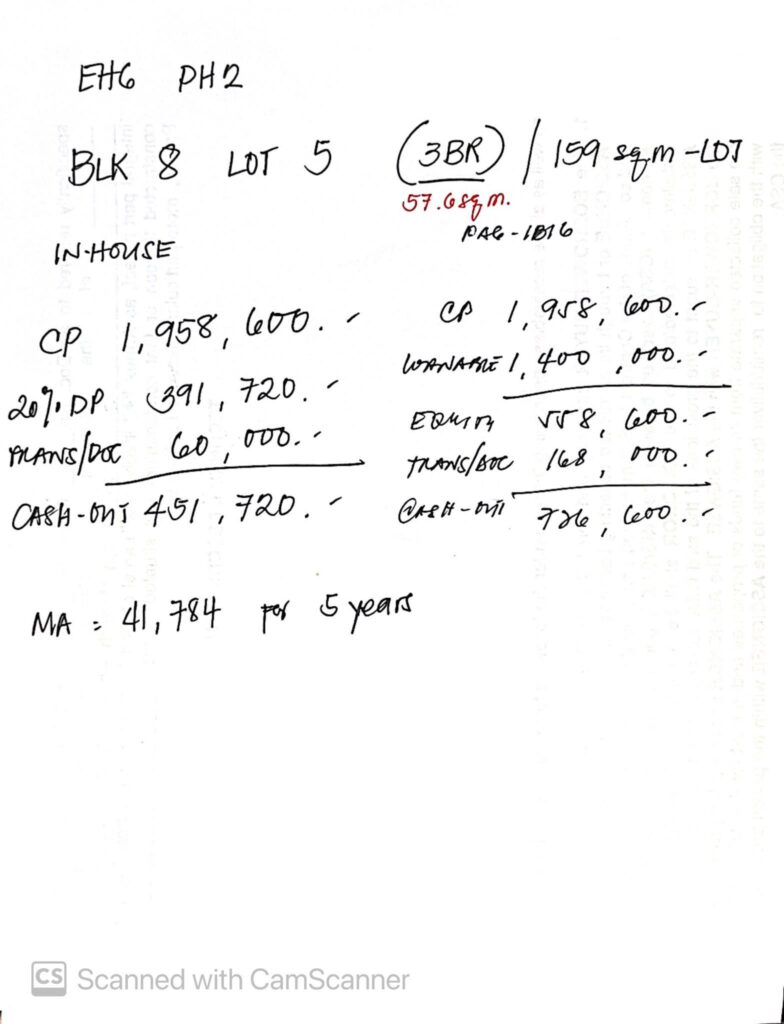 EHG PH2
BLK 8 LOT 5 (3BR) / 159 sqm-LOT
57.6sqm.
IN-HOUSE
CP 1,958,600.-
20% DP 391,720.-
TRANS/DOC 60,000.-
CASH-OUT 451,720.-
MA = 41,784 for 5 years
PAG-IBIG
CP 1,958,600.-
LOANABLE 1,400,000.-
EQUITY 558,600.-
TRANS/DOC 168,000.-
CASH-OUT 726,600.-
CS Scanned with CamScanner